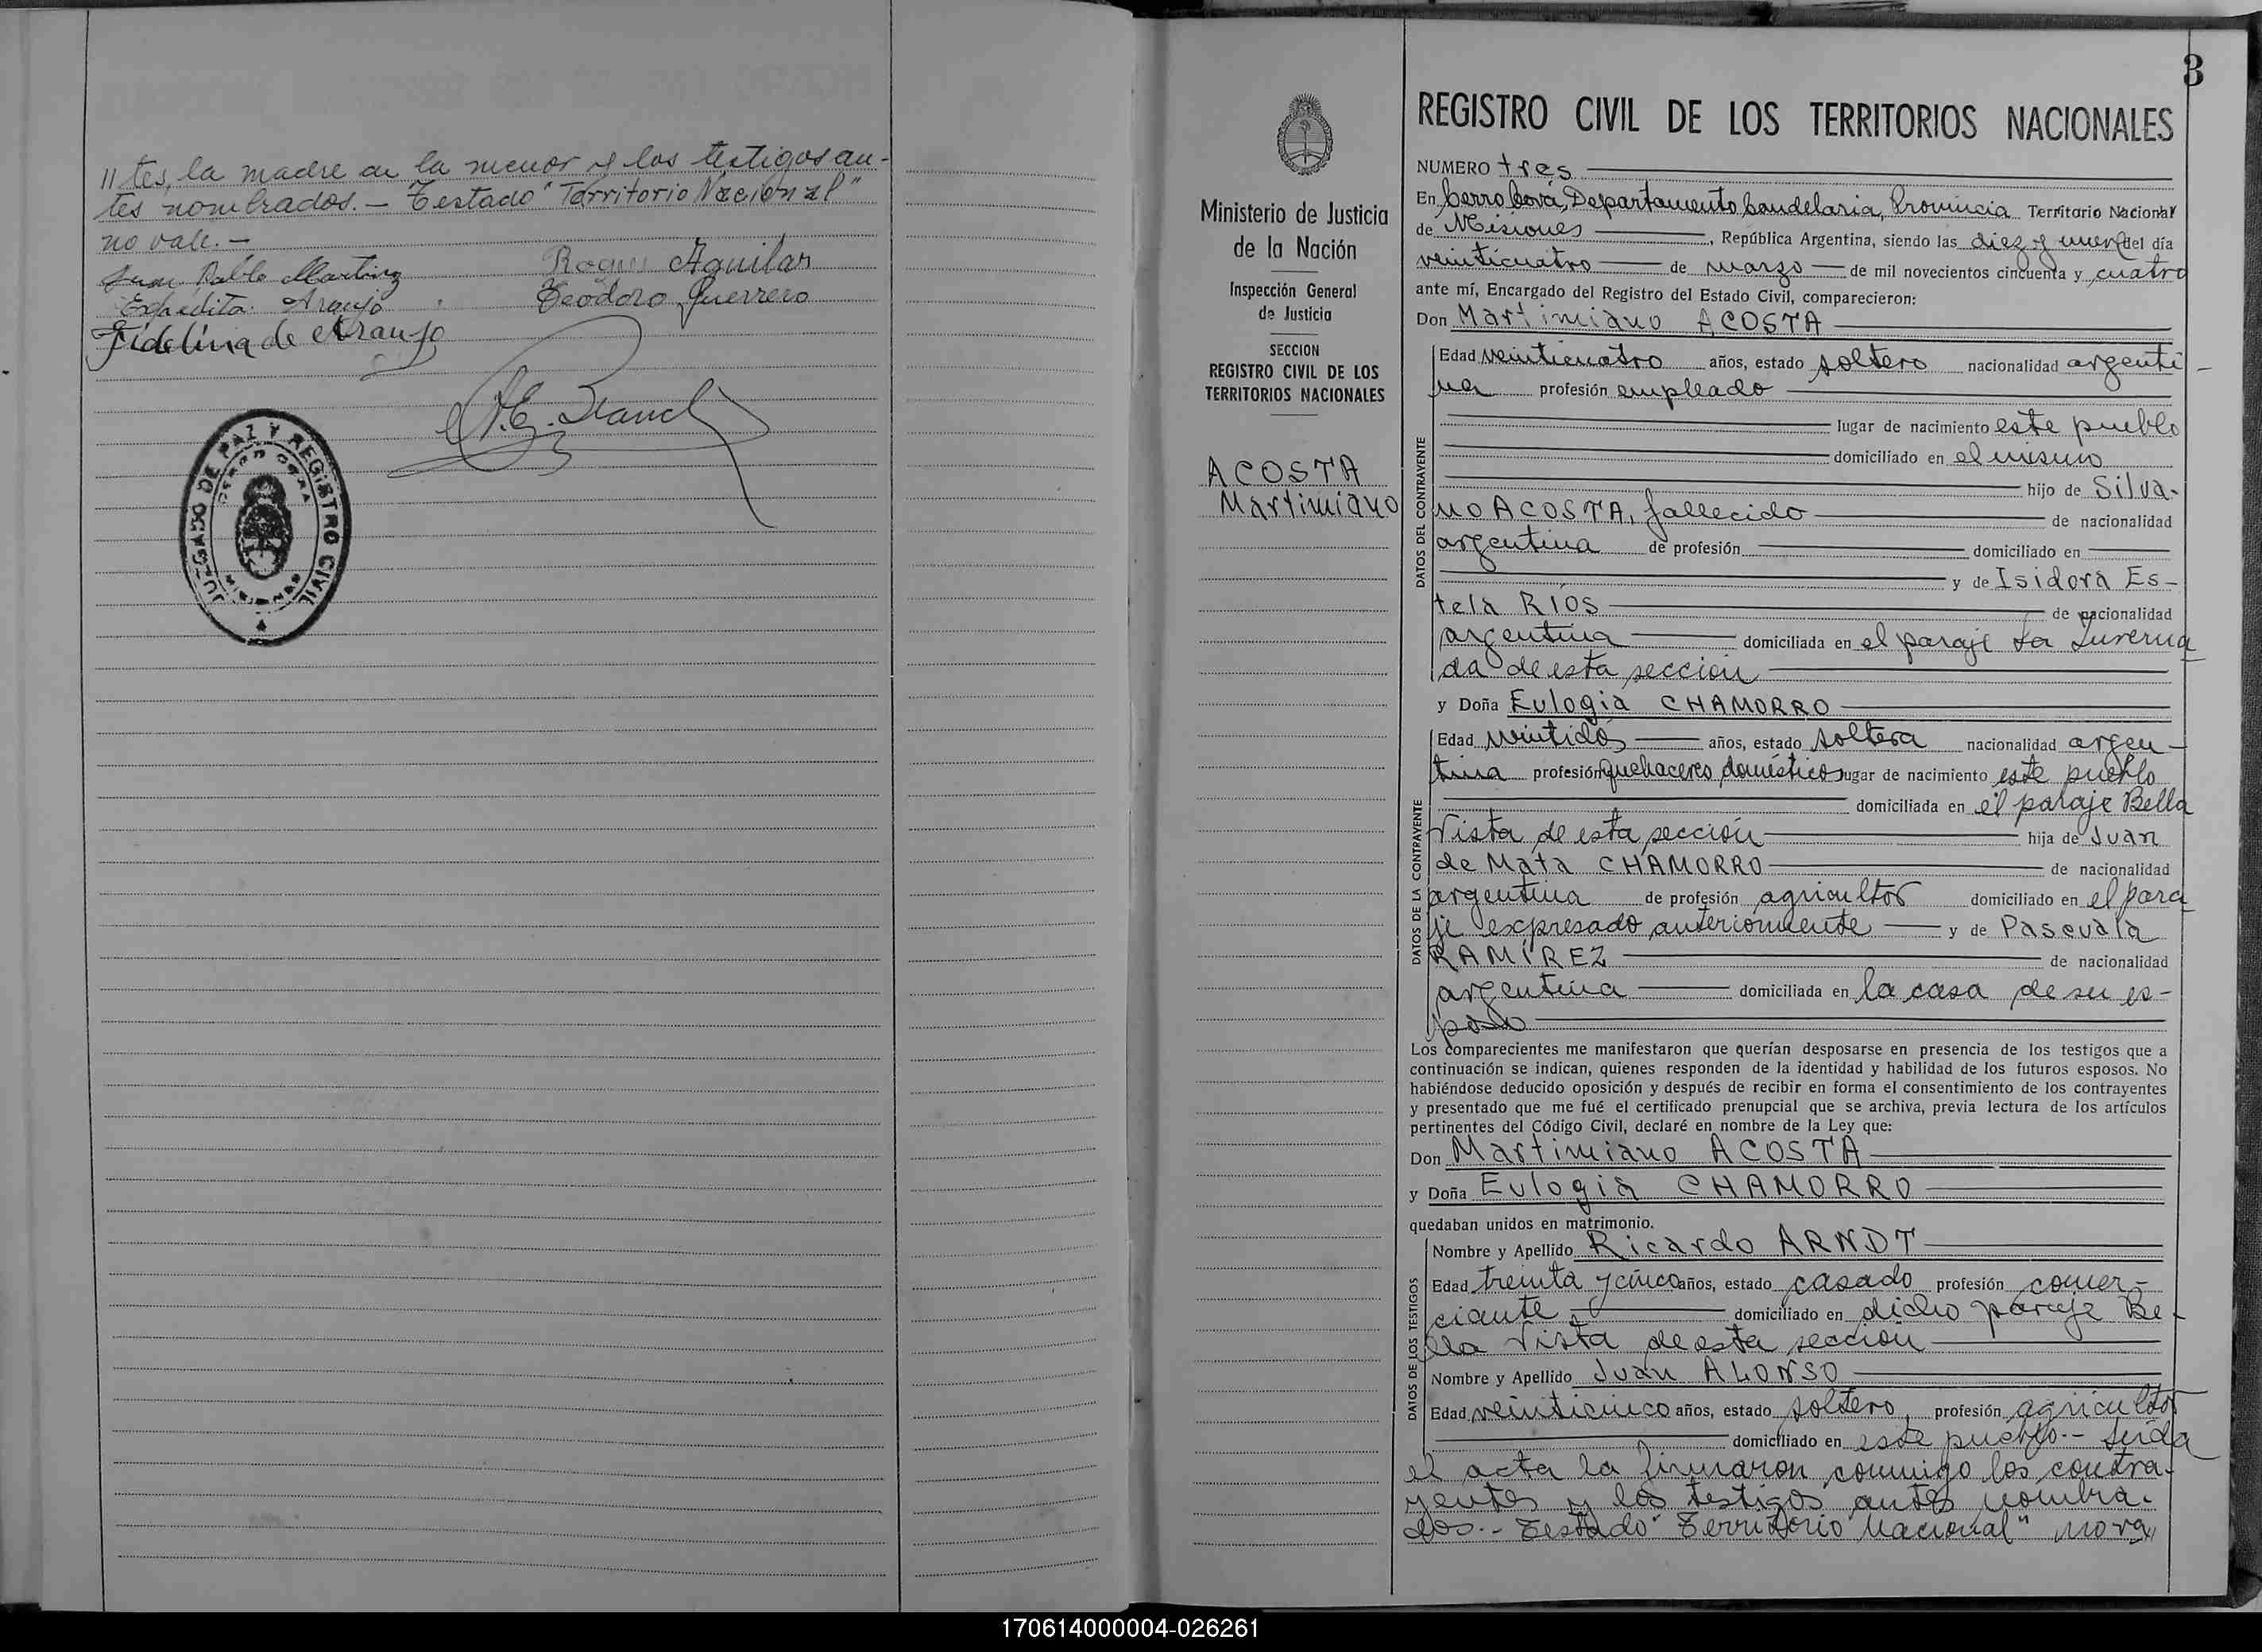 // tes, la madre de la menor y los testigos an-
tes nombrados.- Testado "Territorio Nacional"
no vale.-
Juan Pablo Martinez Roque Aguilar
Expedita Araujo Teodoro Guerrero
Fidelina de Araujo
JUZGADO DE PAZ Y REGISTRO CIVIL
CERRO CORA
MISIONES
Ministerio de Justicia
de la Nación
Inspección General
de Justicia
SECCION
REGISTRO CIVIL DE LOS
TERRITORIOS NACIONALES
ACOSTA
Martimiano
3
REGISTRO CIVIL DE LOS TERRITORIOS NACIONALES
NUMERO tres
En Cerro Corá, Departamento Candelaria, Provincia Territorio Nacional
de Misiones, República Argentina, siendo las diez y nueve del día
veinticuatro de marzo de mil novecientos cincuenta y cuatro
ante mí, Encargado del Registro del Estado Civil, comparecieron:
Don Martimiano ACOSTA
DATOS DEL CONTRAYENTE
Edad veinticuatro años, estado soltero nacionalidad argenti-
na profesión empleado
lugar de nacimiento este pueblo
domiciliado en el mismo
hijo de Silva-
no ACOSTA, fallecido de nacionalidad
argentina de profesión domiciliado en
y de Isidora Es-
tela RÍOS de nacionalidad
argentina domiciliada en el paraje La Inverna
da de esta sección
y Doña Eulogia CHAMORRO
DATOS DE LA CONTRAYENTE
Edad veintidós años, estado soltera nacionalidad argen-
tina profesión quehaceres domésticos lugar de nacimiento este pueblo
domiciliada en el paraje Bella
Vista de esta sección hija de Juan
de Mata CHAMORRO de nacionalidad
argentina de profesión agricultor domiciliado en el para
je expresado anteriormente y de Pascuala
RAMÍREZ de nacionalidad
argentina domiciliada en la casa de su es-
poso
Los comparecientes me manifestaron que querían desposarse en presencia de los testigos que a
continuación se indican, quienes responden de la identidad y habilidad de los futuros esposos. No
habiéndose deducido oposición y después de recibir en forma el consentimiento de los contrayentes
y presentado que me fué el certificado prenupcial que se archiva, previa lectura de los artículos
pertinentes del Código Civil, declaré en nombre de la Ley que:
Don Martimiano ACOSTA
y Doña Eulogia CHAMORRO
quedaban unidos en matrimonio.
DATOS DE LOS TESTIGOS
Nombre y Apellido Ricardo ARNDT
Edad treinta y cinco años, estado casado profesión comer-
ciante domiciliado en dicho paraje Be-
lla Vista de esta sección
Nombre y Apellido Juan ALONSO
Edad veinticinco años, estado soltero, profesión agricultor
domiciliado en este pueblo.- Leída
el acta la firmaron conmigo los contra-
yentes y los testigos antes nombra-
dos.- Testado "Territorio Nacional" no va//
170614000004-026261